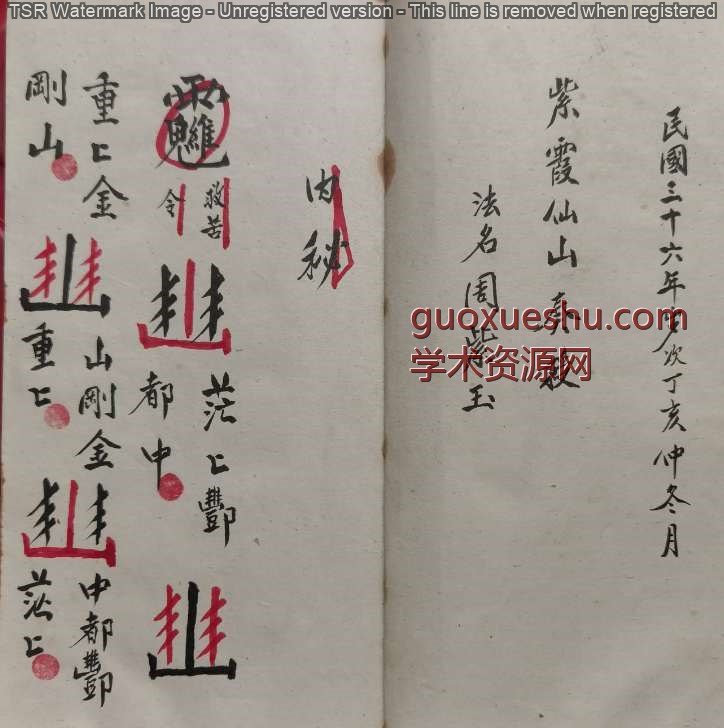 TSR Watermark Image - Unregistered version - This line is removed when registered
民國三十六年歲次丁亥仲冬月
紫霞仙山
法名周紫玉
guoxueshu.com
学术资源网
内秘
救苦
令
茫〻酆
都中
重〻金
剛山
山剛金
重〻
中都酆
茫〻